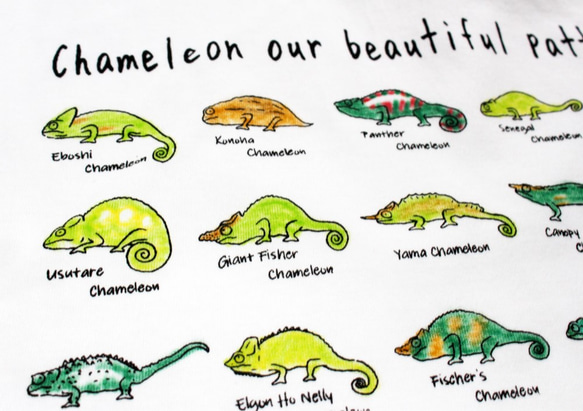 Chameleon our beautiful
Eboshi
Chameleon
Konoha
Chameleon
Panther
Chameleon
Senegal
Chameleon
Usutare
Chameleon
Giant Fisher
Chameleon
Yama Chameleon
Canopy
Elgon Ho Nelly
Fischer's
Chameleon